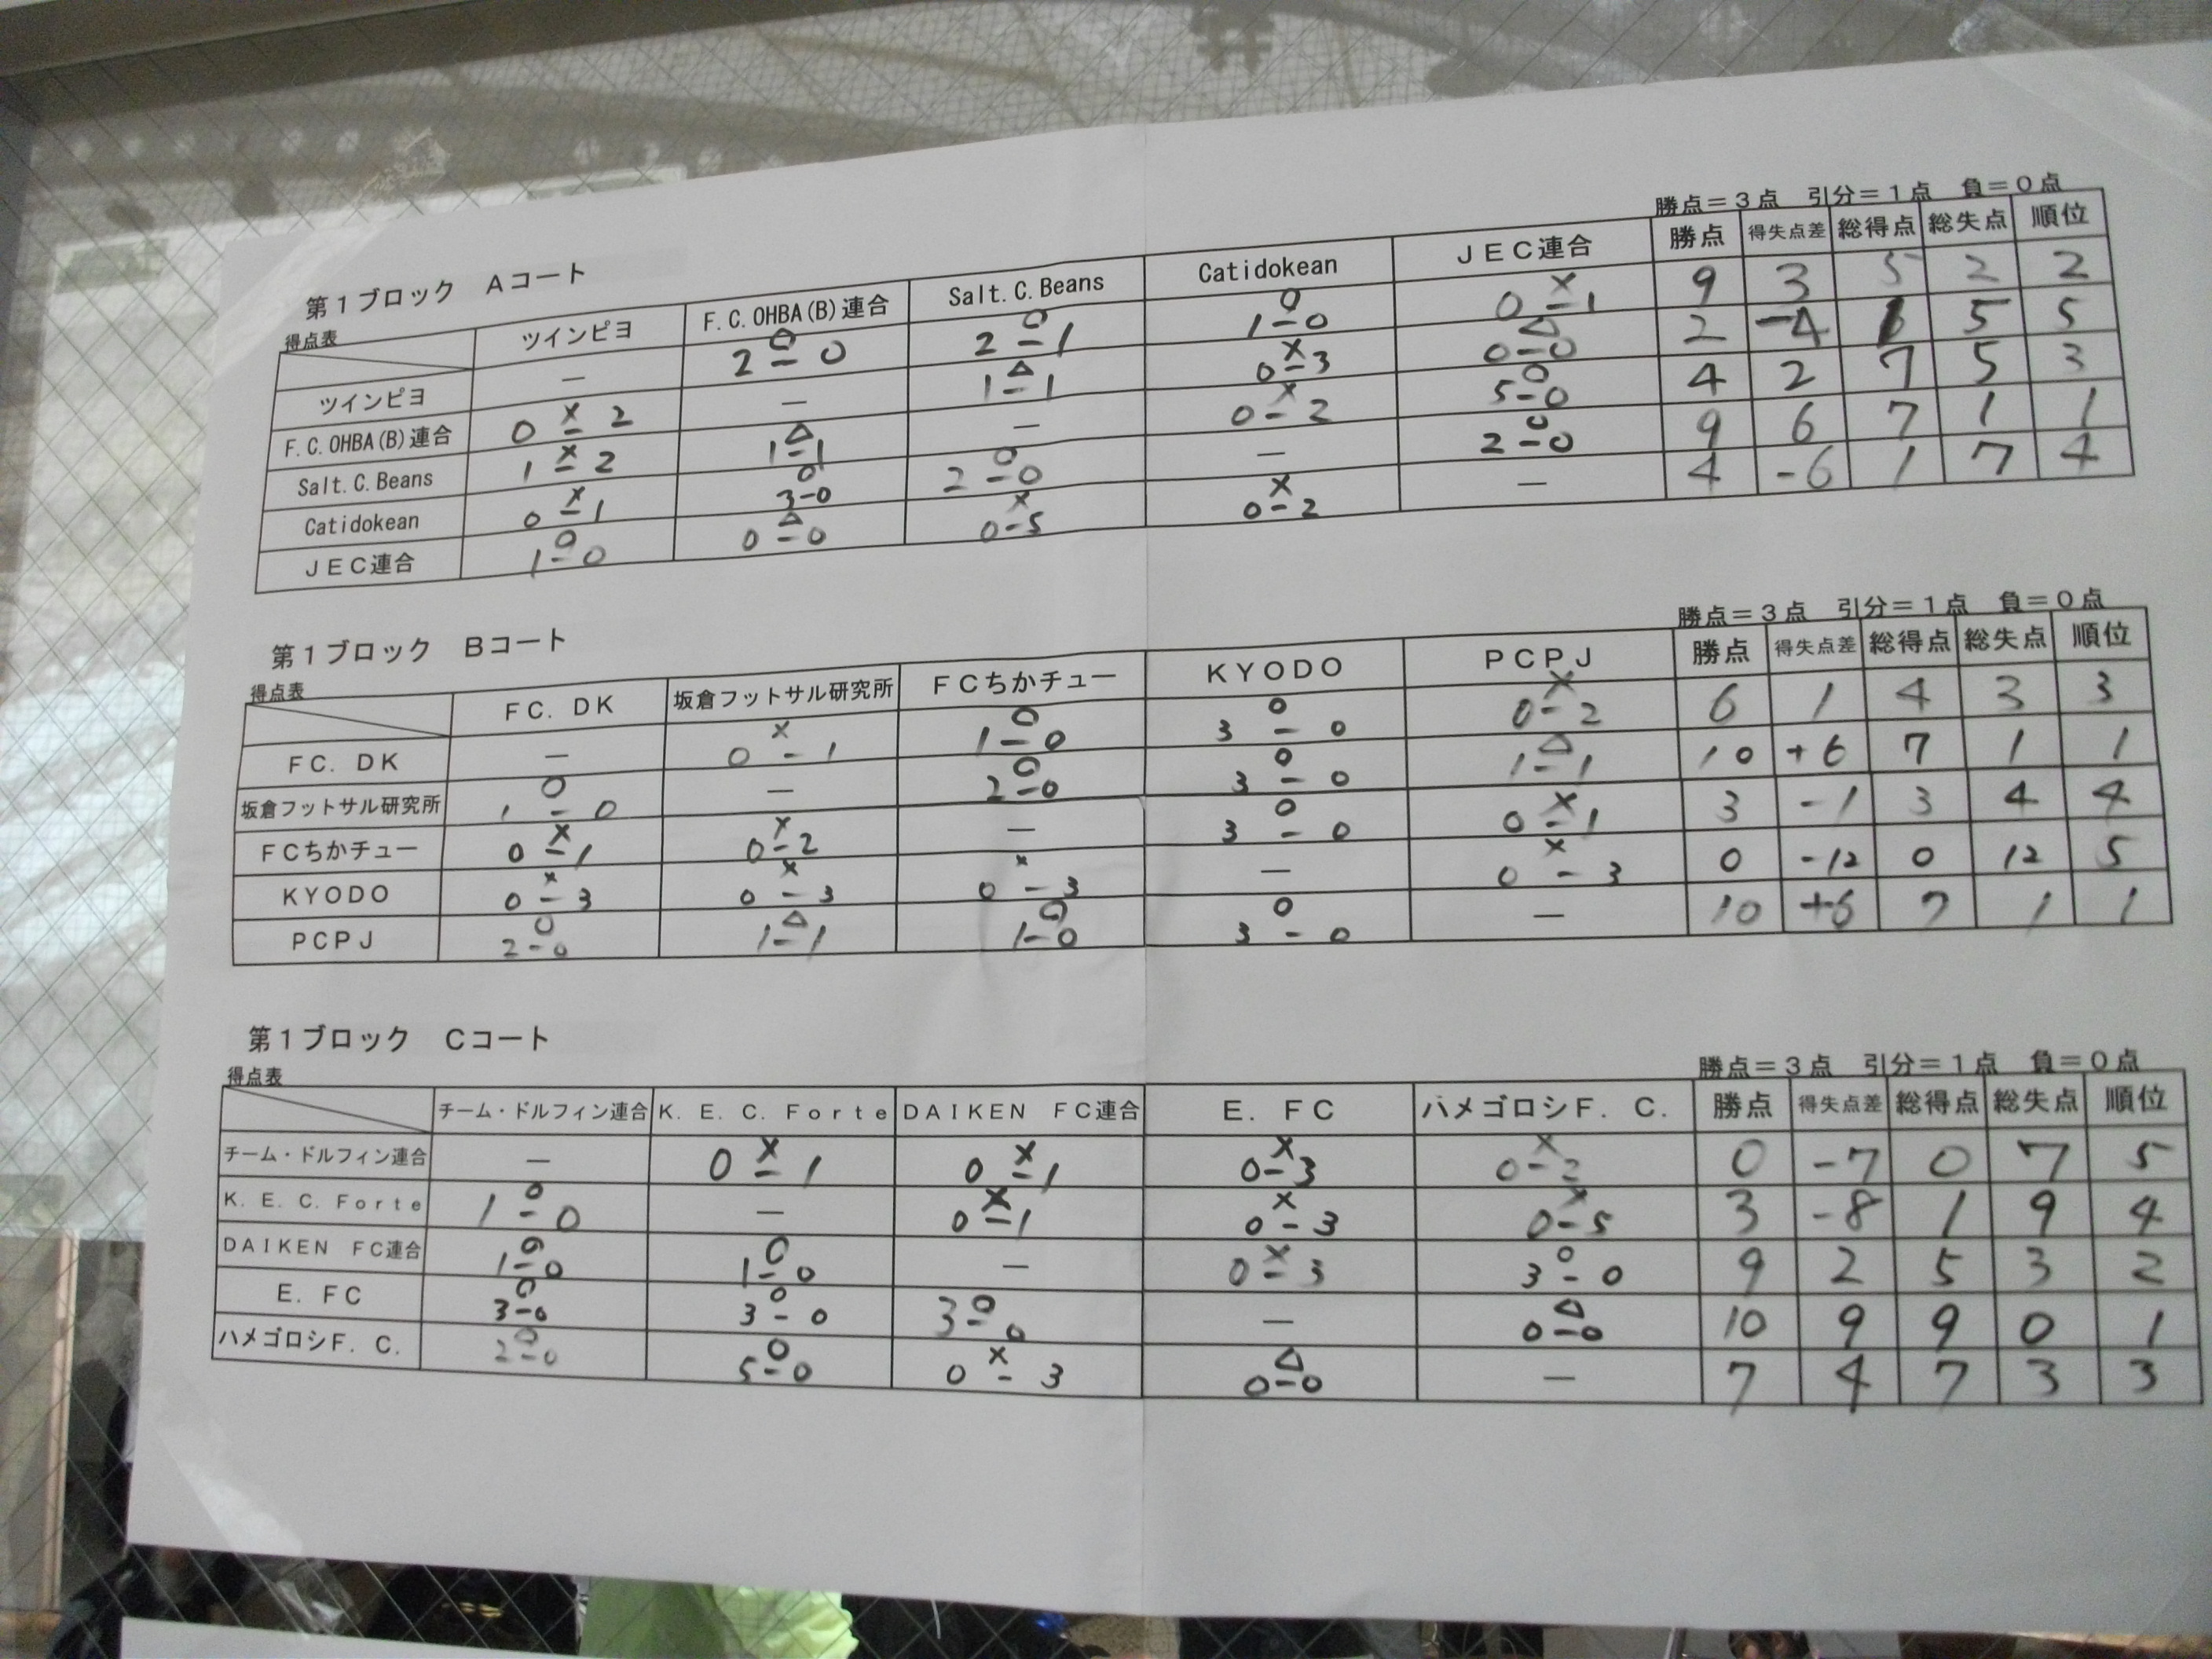 勝点＝３点　引分＝１点　負＝０点
第１ブロック　Ａコート
得点表
ツインピヨ F.C.OHBA(B)連合 Salt.C.Beans Catidokean ＪＥＣ連合 勝点 得失点差 総得点 総失点 順位
ツインピヨ － ○ 2-0 ○ 2-1 ○ 1-0 × 0-1 9 3 5 2 2
F.C.OHBA(B)連合 × 0-2 － △ 1-1 × 0-3 △ 0-0 2 -4 5 5
Salt.C.Beans × 1-2 △ 1-1 － × 0-2 ○ 5-0 4 2 7 5 3
Catidokean × 0-1 ○ 3-0 ○ 2-0 － ○ 2-0 9 6 7 1 1
ＪＥＣ連合 ○ 1-0 △ 0-0 × 0-5 × 0-2 － 4 -6 1 7 4
勝点＝３点　引分＝１点　負＝０点
第１ブロック　Ｂコート
得点表
ＦＣ．ＤＫ 坂倉フットサル研究所 ＦＣちかチュー ＫＹＯＤＯ ＰＣＰＪ 勝点 得失点差 総得点 総失点 順位
ＦＣ．ＤＫ － × 0-1 ○ 1-0 ○ 3-0 × 0-2 6 1 4 3 3
坂倉フットサル研究所 ○ 1-0 － ○ 2-0 ○ 3-0 △ 1-1 10 +6 7 1 1
ＦＣちかチュー × 0-1 × 0-2 － ○ 3-0 × 0-1 3 -1 3 4 4
ＫＹＯＤＯ × 0-3 × 0-3 × 0-3 － × 0-3 0 -12 0 12 5
ＰＣＰＪ ○ 2-0 △ 1-1 ○ 1-0 ○ 3-0 － 10 +6 7 1 1
第１ブロック　Ｃコート
勝点＝３点　引分＝１点　負＝０点
得点表
チーム・ドルフィン連合 Ｋ．Ｅ．Ｃ．Ｆｏｒｔｅ ＤＡＩＫＥＮ　ＦＣ連合 Ｅ．ＦＣ ハメゴロシＦ．Ｃ． 勝点 得失点差 総得点 総失点 順位
チーム・ドルフィン連合 － × 0-1 × 0-1 × 0-3 × 0-2 0 -7 0 7 5
Ｋ．Ｅ．Ｃ．Ｆｏｒｔｅ ○ 1-0 － × 0-1 × 0-3 × 0-5 3 -8 1 9 4
ＤＡＩＫＥＮ　ＦＣ連合 ○ 1-0 ○ 1-0 － × 0-3 ○ 3-0 9 2 5 3 2
Ｅ．ＦＣ ○ 3-0 ○ 3-0 ○ 3-0 － △ 0-0 10 9 9 0 1
ハメゴロシＦ．Ｃ． ○ 2-0 ○ 5-0 × 0-3 △ 0-0 － 7 4 7 3 3